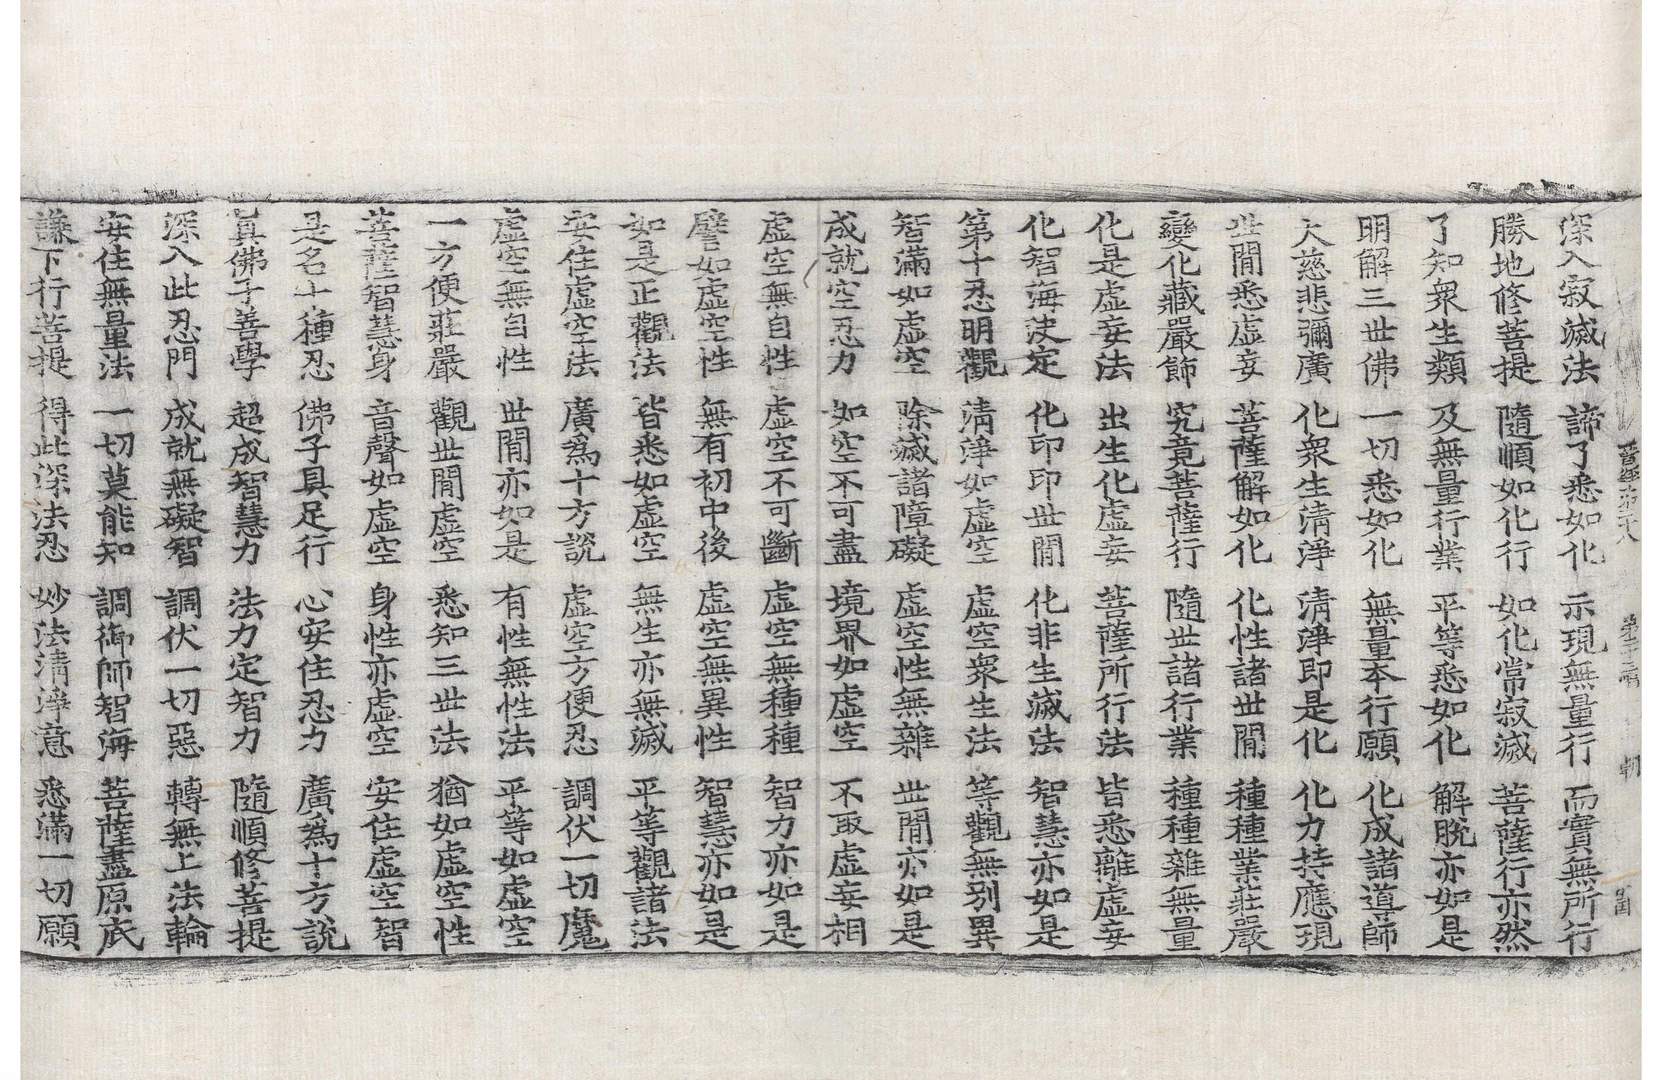 深入寂滅法 諦了悉如化 示現無量行 而實無所行
勝地修菩提 隨順如化行 如化常寂滅 菩薩行亦然
了知衆生類 及無量行業 平等悉如化 解脫亦如是
明解三世佛 一切悉如化 無量本行願 化成諸導師
大慈悲彌廣 化衆生清淨 清淨即是化 化力持應現
世間悉虛妄 菩薩解如化 化性諸世間 種種業莊嚴
變化藏嚴飾 究竟菩薩行 隨世諸行業 種種雜無量
化是虛妄法 出生化虛妄 菩薩所行法 皆悉離虛妄
化智海決定 化印印世間 化非生滅法 智慧亦如是
第十忍明觀 清淨如虛空 虛空衆生法 等觀無別異
智滿如虛空 除滅諸障礙 虛空性無雜 世間亦如是
成就空忍力 如空不可盡 境界如虛空 不取虛妄相
虛空無自性 虛空不可斷 虛空無種種 智力亦如是
譬如虛空性 無有初中後 虛空無異性 智慧亦如是
如是正觀法 皆悉如虛空 無生亦無滅 平等觀諸法
安住虛空法 廣爲十方說 虛空方便忍 調伏一切魔
虛空無自性 世間亦如是 有性無性法 平等如虛空
一方便莊嚴 觀世間虛空 悉知三世法 猶如虛空性
菩薩智慧身 音聲如虛空 身性亦虛空 安住虛空智
是名十種忍 佛子具足行 心安住忍力 廣爲十方說
眞佛子善學 超成智慧力 法力定智力 隨順修菩提
深入此忍門 成就無礙智 調伏一切惡 轉無上法輪
安住無量法 一切莫能知 調御師智海 菩薩盡原底
謙下行菩提 得此深法忍 妙法清淨意 悉滿一切願